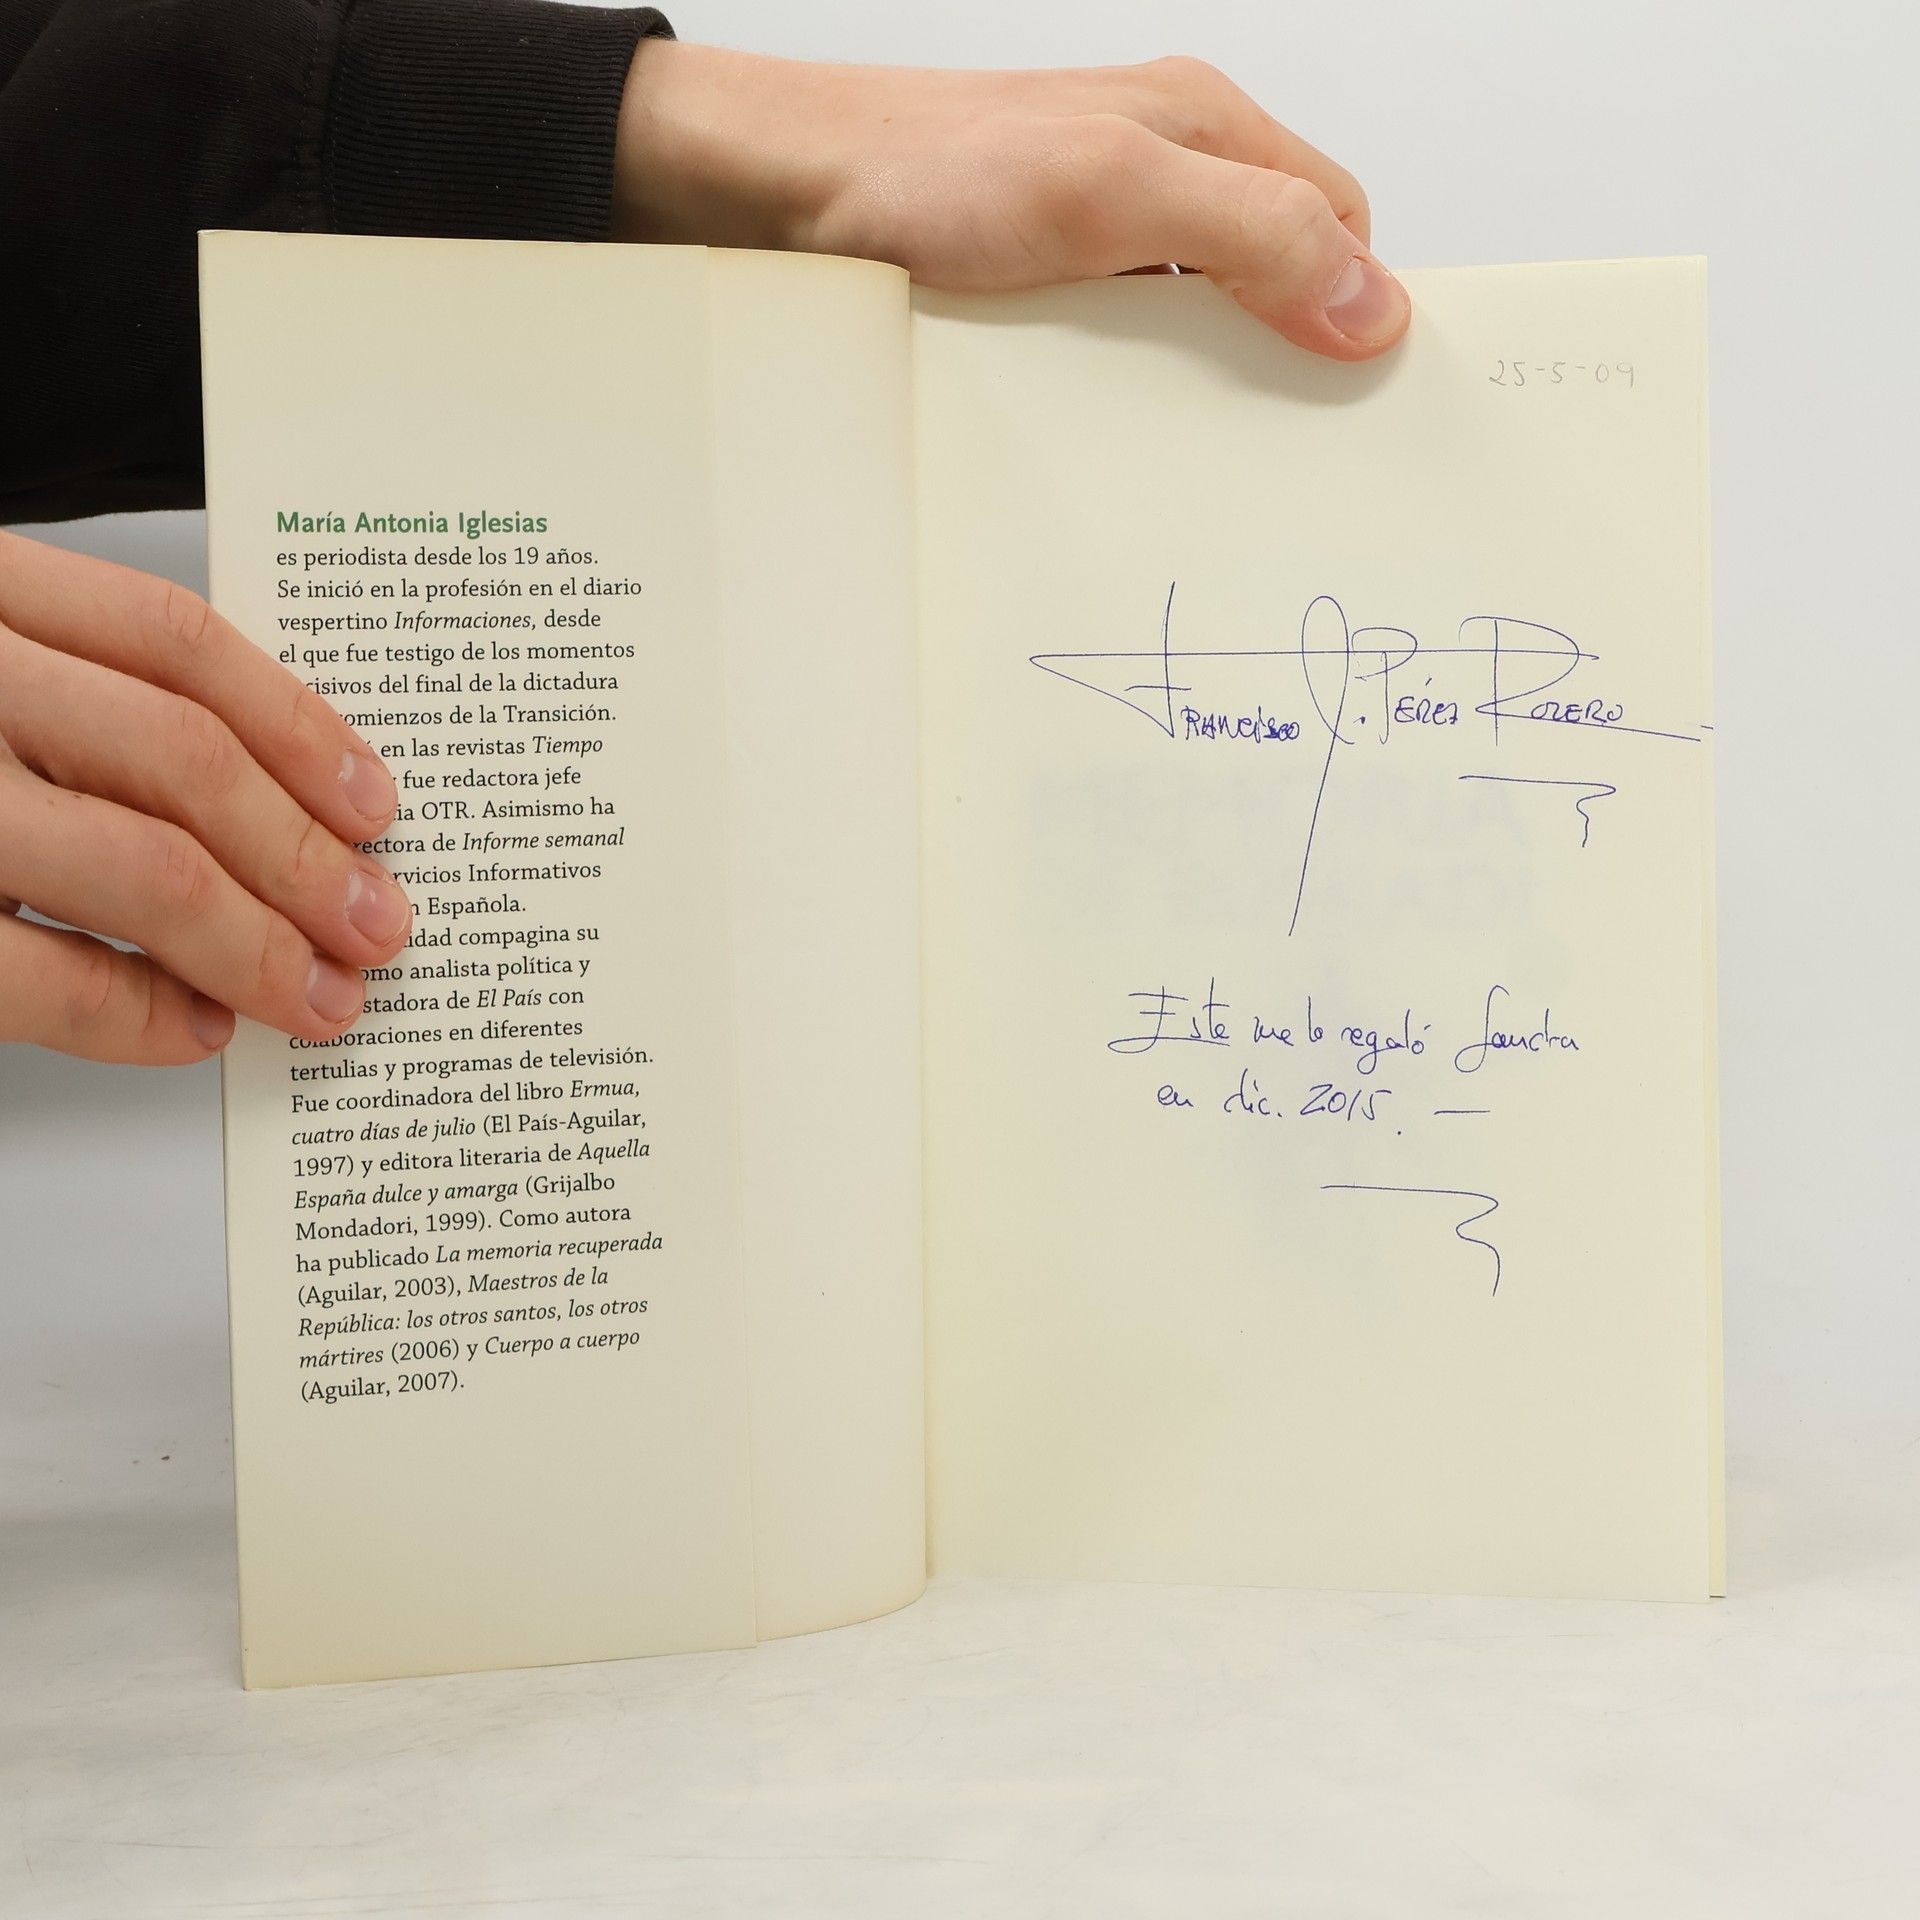 María Antonia Iglesias
es periodista desde los 19 años.
Se inició en la profesión en el diario
vespertino Informaciones, desde
el que fue testigo de los momentos
cisivos del final de la dictadura
omienzos de la Transición.
en las revistas Tiempo
fue redactora jefe
ia OTR. Asimismo ha
rectora de Informe semanal
rvicios Informativos
n Española.
idad compagina su
omo analista política y
stadora de El País con
colaboraciones en diferentes
tertulias y programas de televisión.
Fue coordinadora del libro Ermua,
cuatro días de julio (El País-Aguilar,
1997) y editora literaria de Aquella
España dulce y amarga (Grijalbo
Mondadori, 1999). Como autora
ha publicado La memoria recuperada
(Aguilar, 2003), Maestros de la
República: los otros santos, los otros
mártires (2006) y Cuerpo a cuerpo
(Aguilar, 2007).
25-5-09
FRANCISCO J. PÉREZ ROZERO
Este me lo regaló Sandra
en dic. 2015. —